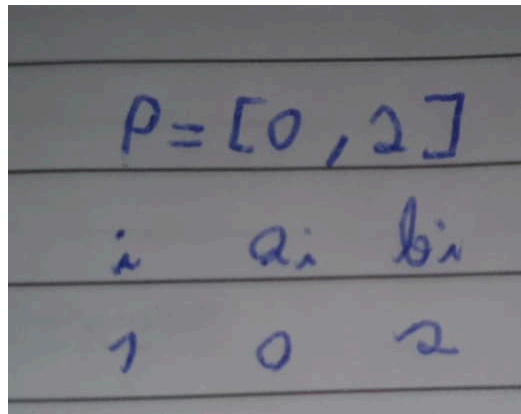 P = [0, 2]
i ai bi
1 0 2